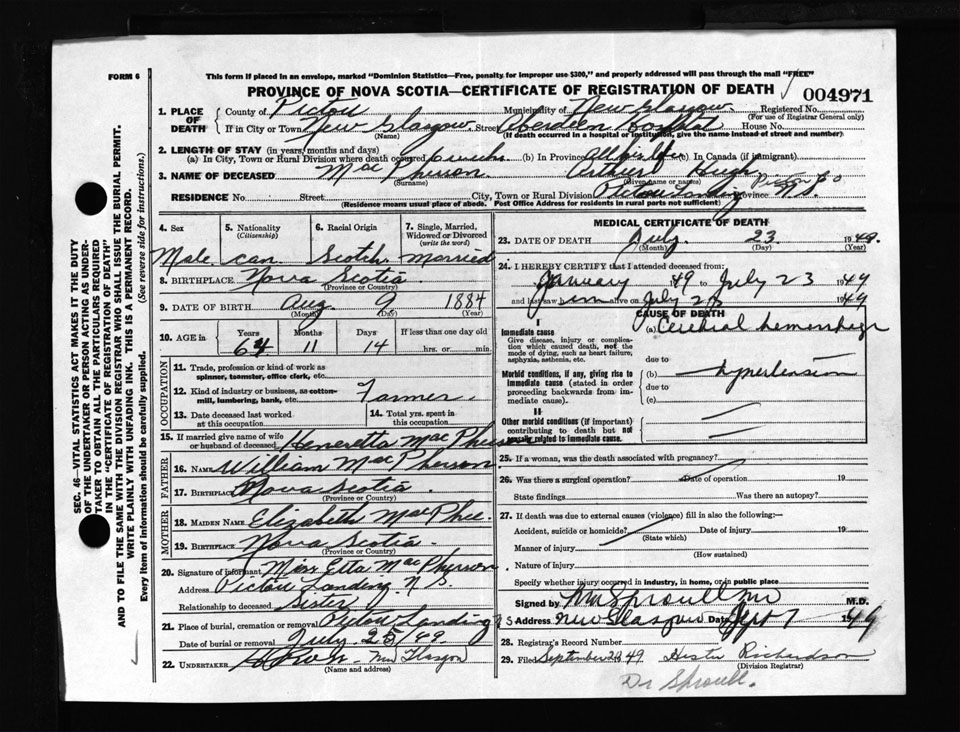 FORM 6
This form if placed in an envelope, marked "Dominion Statistics—Free, penalty for improper use $300," and properly addressed will pass through the mail "FREE"
PROVINCE OF NOVA SCOTIA—CERTIFICATE OF REGISTRATION OF DEATH
004971
1. PLACE OF DEATH
County of Pictou Municipality of New Glasgow Registered No.
(For use of Registrar General only)
If in City or Town New Glasgow Street Aberdeen Hospital House No.
(Name) (If death occurred in a hospital or institution, give name instead of street and number)
2. LENGTH OF STAY (in years, months and days)
(a) In City, Town or Rural Division where death occurred 6 weeks (b) In Province All his life (c) In Canada (if immigrant)
3. NAME OF DECEASED MacPherson Arthur Hugh
(Surname) (Given name or names)
RESIDENCE No. Street City, Town or Rural Division Pictou Landing Pictou Co Province N.S.
(Residence means usual place of abode. Post Office Address for residents in rural parts not sufficient)
4. Sex
Male
5. Nationality
(Citizenship)
Can.
6. Racial Origin
Scotch
7. Single, Married, Widowed or Divorced
(write the word)
Married
8. BIRTHPLACE Nova Scotia
(Province or Country)
9. DATE OF BIRTH Aug 9 1884
(Month) (Day) (Year)
10. AGE in
Years Months Days If less than one day old
64 11 14 hrs. or min.
OCCUPATION
11. Trade, profession or kind of work as spinner, teamster, office clerk, etc.
12. Kind of industry or business, as cotton-mill, lumbering, bank, etc. Farmer
13. Date deceased last worked at this occupation
14. Total yrs. spent in this occupation
15. If married give name of wife or husband of deceased Heneretta MacPherson
FATHER
16. NAME William MacPherson
17. BIRTHPLACE Nova Scotia
MOTHER
18. MAIDEN NAME Elizabeth MacPhee
19. BIRTHPLACE Nova Scotia
(Province or Country)
20. Signature of informant Miss Etta MacPherson
Address Pictou Landing N.S.
Relationship to deceased Sister
21. Place of burial, cremation or removal Pictou Landing NS
Date of burial or removal July 25/49
22. UNDERTAKER New Glasgow
(Name and address)
MEDICAL CERTIFICATE OF DEATH
23. DATE OF DEATH July 23 1949
(Month) (Day) (Year)
24. I HEREBY CERTIFY that I attended deceased from:
January 1949 to July 23 1949
and last saw him alive on July 23 1949
CAUSE OF DEATH
I
Immediate cause
Give disease, injury or complication which caused death, not the mode of dying, such as heart failure, asphyxia, asthenia, etc.
(a) Cerebral hemorrhage
due to
Morbid conditions, if any, giving rise to immediate cause (stated in order proceeding backwards from immediate cause).
(b) hypertension
due to
(c)
II
Other morbid conditions (if important) contributing to death but not causally related to immediate cause.
25. If a woman, was the death associated with pregnancy?
26. Was there a surgical operation? Date of operation 19
State findings Was there an autopsy?
27. If death was due to external causes (violence) fill in also the following:—
Accident, suicide or homicide? Date of injury 19
(State which)
Manner of injury
(How sustained)
Nature of injury
Specify whether injury occurred in industry, in home, or in public place
Signed by Wm Sproull MD M.D.
Address New Glasgow Date Sept 7 1949
28. Registrar's Record Number
29. Filed September 49 Hester Richardson
(Division Registrar)
Dr Sproull.
SEC. 46—VITAL STATISTICS ACT MAKES IT THE DUTY OF THE UNDERTAKER OR PERSON ACTING AS UNDERTAKER TO OBTAIN ALL THE PARTICULARS REQUIRED IN THE "CERTIFICATE OF REGISTRATION OF DEATH" AND TO FILE THE SAME WITH THE DIVISION REGISTRAR WHO SHALL ISSUE THE BURIAL PERMIT.
WRITE PLAINLY WITH UNFADING INK. THIS IS A PERMANENT RECORD.
Every item of information should be carefully supplied. (See reverse side for instructions.)